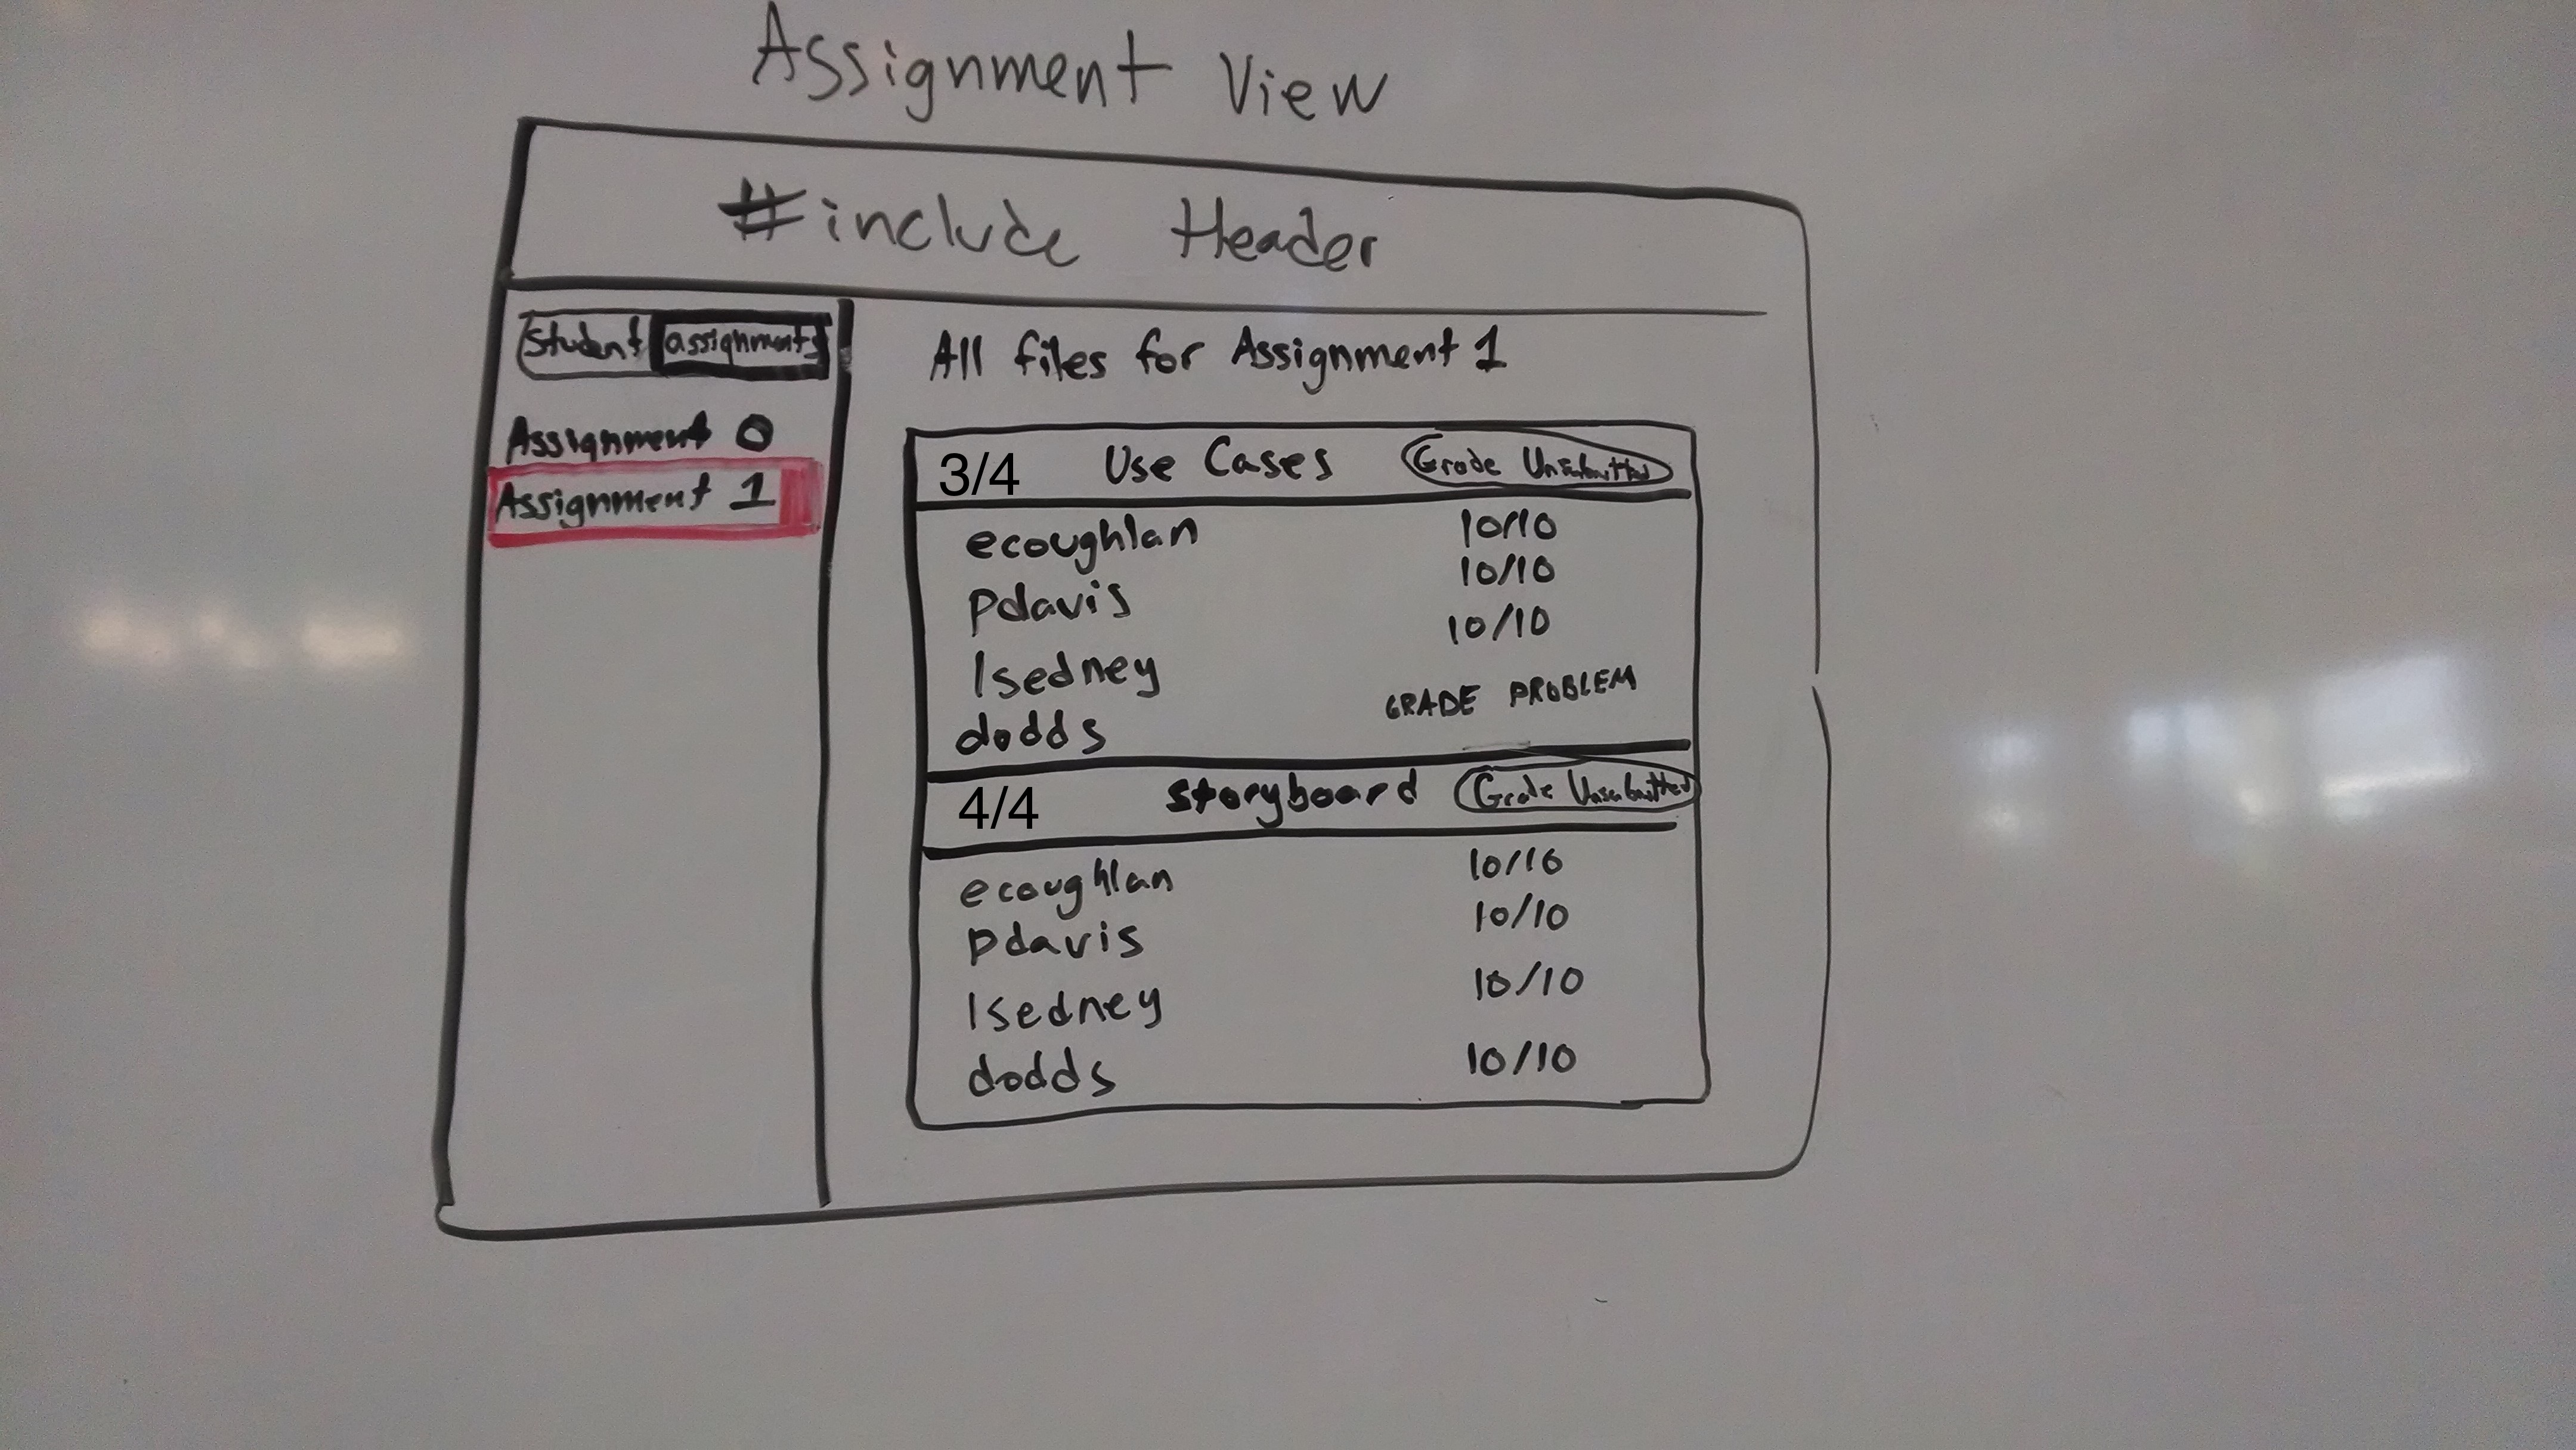 Assignment View
#include Header
Student assignments
Assignment 0
Assignment 1
All files for Assignment 1
3/4 Use Cases Grade Unsubmitted
ecoughlan 10/10
pdavis 10/10
lsedney 10/10
dodds GRADE PROBLEM
4/4 storyboard Grade Unsubmitted
ecoughlan 10/10
pdavis 10/10
lsedney 10/10
dodds 10/10